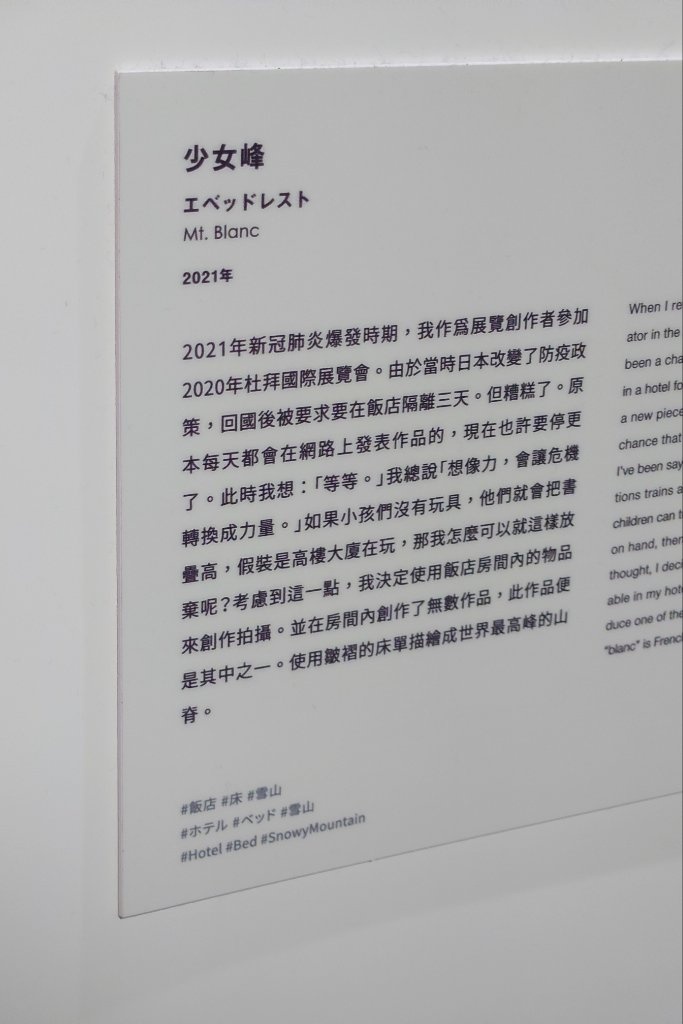 少女峰
エベッドレスト
Mt. Blanc
2021年
2021年新冠肺炎爆發時期，我作為展覽創作者參加
2020年杜拜國際展覽會。由於當時日本改變了防疫政
策，回國後被要求要在飯店隔離三天。但糟糕了。原
本每天都會在網路上發表作品的，現在也許要停更
了。此時我想：「等等。」我總說「想像力，會讓危機
轉換成力量。」如果小孩們沒有玩具，他們就會把書
疊高，假裝是高樓大廈在玩，那我怎麼可以就這樣放
棄呢？考慮到這一點，我決定使用飯店房間內的物品
來創作拍攝。並在房間內創作了無數作品，此作品便
是其中之一。使用皺褶的床單描繪成世界最高峰的山
脊。
#飯店 #床 #雪山
#ホテル #ベッド #雪山
#Hotel #Bed #SnowyMountain
When I re
ator in the
been a cha
in a hotel fo
a new piece
chance that
I've been say
tions trains a
children can t
on hand, then
thought, I deci
able in my hote
duce one of the
"blanc" is French